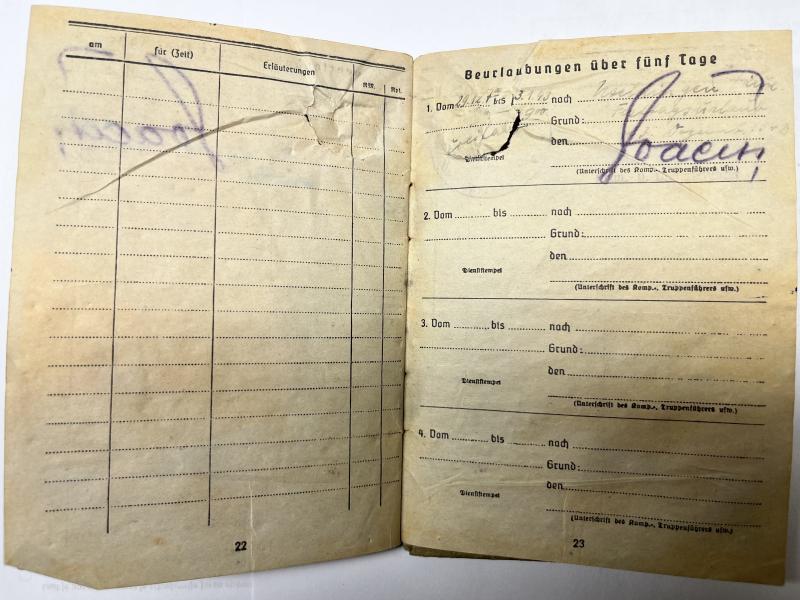 am
für (Zeit)
Erläuterungen
RM.
Rpf.
22
Beurlaubungen über fünf Tage
1. Vom bis nach
Grund:
den
Dienststempel
(Unterschrift des Komp.-, Truppenführers usw.)
2. Vom bis nach
Grund:
den
Dienststempel
(Unterschrift des Komp.-, Truppenführers usw.)
3. Vom bis nach
Grund:
den
Dienststempel
(Unterschrift des Komp.-, Truppenführers usw.)
4. Vom bis nach
Grund:
den
Dienststempel
(Unterschrift des Komp.-, Truppenführers usw.)
23